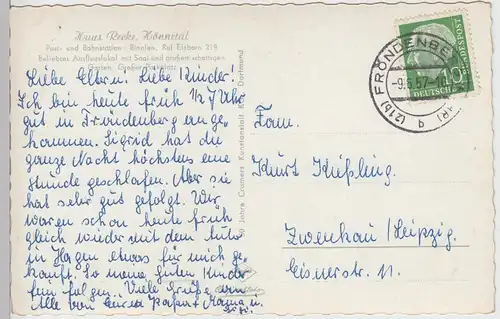 Haus Recke, Hönnetal
Post- und Bahnstation: Binolen, Ruf Eisborn 219
Beliebtes Ausflugslokal mit Saal und großem schattigen
Garten, Großer Parkplatz
Liebe Eltern! Liebe Kinder!
Ich bin heute früh ½ 7 Uhr
gut in Fröndenberg ange-
kommen. Sigrid hat die
ganze Nacht höchstens eine
Stunde geschlafen. Aber sie
hat sehr gut gefolgt. Wir
waren schon heute früh
gleich wieder mit dem Auto
in Hagen etwas für mich ge-
kauft. So meine guten Kinder
fein folgen. Viele Grüße
Alle von Eurem Papa + Mama u.
Jahre Cramers Kunstanstalt KG, Dortmund
FRÖNDENBERG
(21b)
-9.6.57
q
10
DEUTSCHE BUNDESPOST
Fam.
Kurt Kießling
Zwenkau/Leipzig.
11.